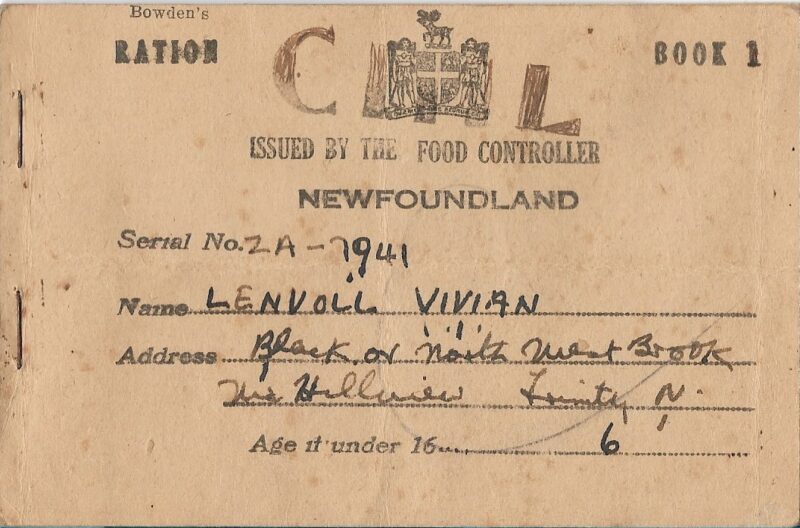 Bowden's
RATION BOOK 1
C L
ISSUED BY THE FOOD CONTROLLER
NEWFOUNDLAND
Serial No. 2A-7941
Name LENVOLL VIVIAN
Address Black or North West Brook
Hillview Trinity N.
Age if under 16 6